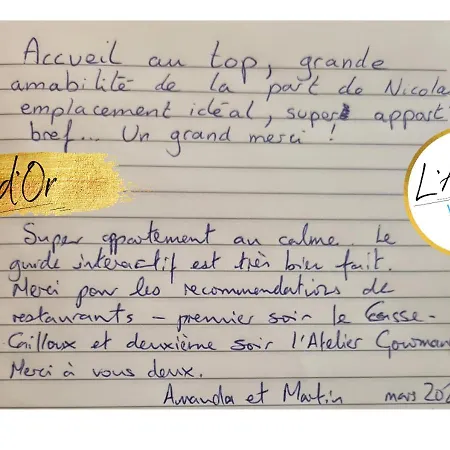 Accueil au top, grande
amabilité de la part de Nicola
emplacement idéal, super appart
bref... Un grand merci !
d'Or
L'A
Super appartement au calme. Le
guide interactif est très bien fait.
Merci pour les recommendations de
restaurants – premier soir le Casse-
Cailloux et deuxième soir l'Atelier Gourman
Merci à vous deux.
Amanda et Martin mars 202